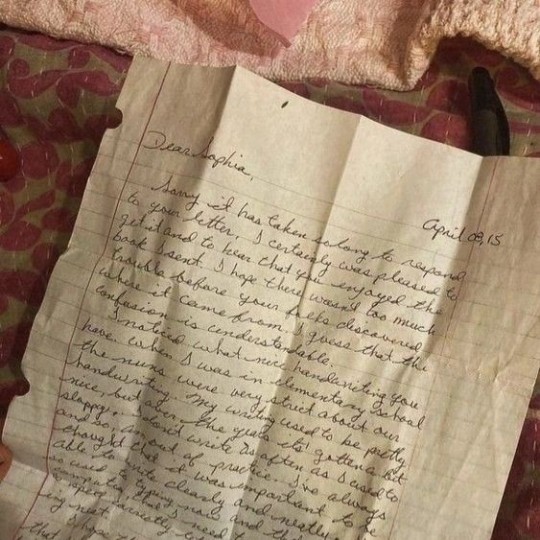 Dear Sophia,
April 09, 15
Sorry it has taken so long to respond
to your letter. I certainly was pleased to
get it and to hear that you enjoyed the
book I sent. I hope there wasn't too much
trouble before your folks discovered
where it came from. I guess that the
confusion is understandable.
I noticed what nice handwriting you
have. When I was in elementary school
the nuns were very strict about our
handwriting. My writing used to be pretty
nice, but over the years its gotten a bit
sloppy. I don't write as often as I used to
and so, am out of practice. I've always
thought that it was important to be
able to write clearly and neatly
used to typing now and
computer that I need to
correctly
ing neat
that I hope